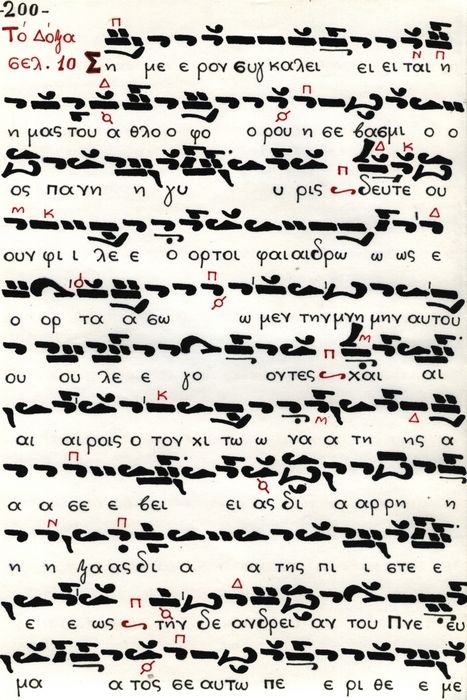 -200-
Τό Δόξα
σελ. 10 Ση με ε ρον συγ καλει ει ει ται η
η μας του α θλο ο φο ο ρου η σε βασμι ο ο
ος πα νη η γυ υ ρις δευτε ου
ουν φι ι λε ε ο ορτοι φαι αιδρω ω ως ε
ο ορ τα α σω ω μεν την μνη μην αυτου
ου ου λε ε γο οντες χαι αι
αι αι ροις ο τον χι τω ω να α τη ης α
α α σε ε βει ει ας δι α αρρη η
η η ξα ας δι α α της πι ι στε ε
ε ε ως την δε ανδρει αν του Πνε ευ
μα α τος σε αυτω πε ε ρι θε ε με